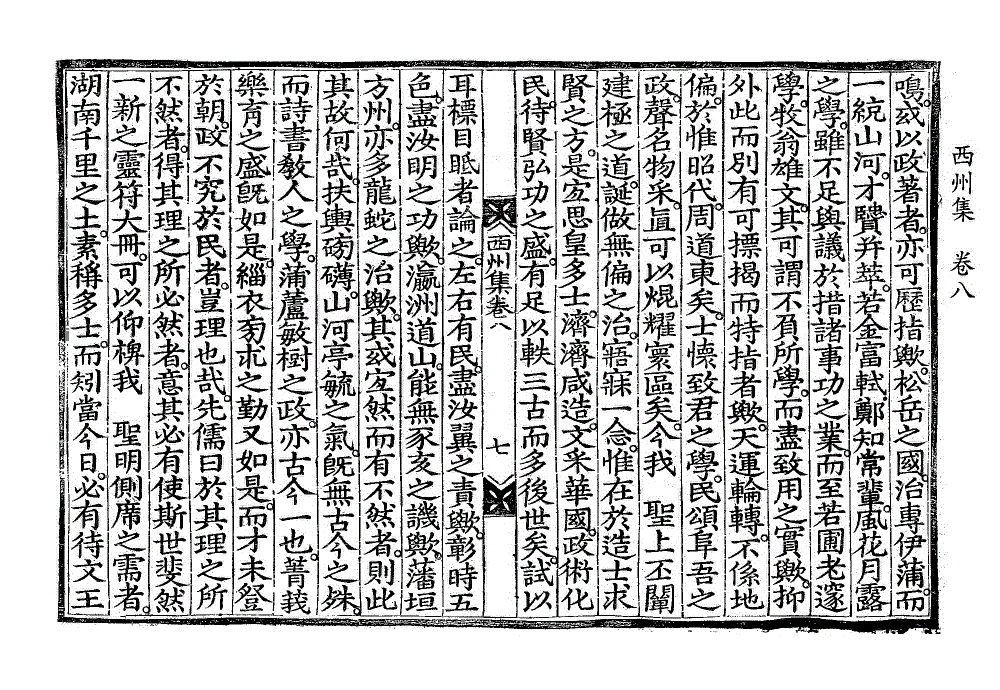 西州集 卷八
鳴。或以政著者。亦可歷指歟。松岳之國治專伊蒲。而
一統山河。才贒幷萃。若金富軾鄭知常輩。風花月露
之學。雖不足與議於措諸事功之業。而至若圃老邃
學。牧翁雄文。其可謂不負所學。而盡致用之實歟。抑
外此而別有可摽揭而特指者歟。天運輪轉。不係地
偏。於惟昭代。周道東矣。士懷致君之學。民頌阜吾之
政。聲名物采。眞可以焜耀寰區矣。今我 聖上丕闡
建極之道。誕做無偏之治。寤寐一念。惟在於造士求
賢之方。是宜思皇多士。濟濟咸造。文采華國。政術化
民。待賢弘功之盛。有足以軼三古而多後世矣。試以
西州集卷八 七
耳標目眡者論之。左右有民。盡汝翼之責歟。彰時五
色。盡汝明之功歟。瀛洲道山。能無豕亥之譏歟。藩垣
方州。亦多龍蛇之治歟。其或宜然而有不然者。則此
其故何哉。扶輿磅礴。山河亭毓之氣。旣無古今之殊。
而詩書敎人之學。蒲蘆敏樹之政。亦古今一也。菁莪
樂育之盛旣如是。緇衣芻朮之勤又如是。而才未登
於朝。政不究於民者。豈理也哉。先儒曰於其理之所
不然者。得其理之所必然者。意其必有使斯世斐然
一新之靈符大冊。可以仰裨我 聖明側席之需者。
湖南千里之土。素稱多士。而矧當今日。必有待文王